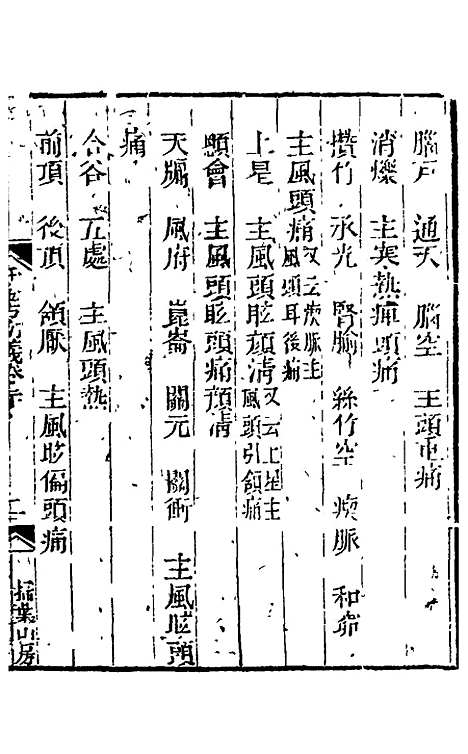 腦戶　通天　腦空　主頭重痛
消爍　主寒熱痺頭痛
攢竹　承光　腎腧　絲竹空　瘈脈　和窌
主風頭痛又云瘈脈主風頭耳後痛
上星　主風頭眩顔清又云上星主風頭引頷痛
顖會　主風頭眩頭痛顔清
天牖　風府　崑崙　關元　關衝　主風眩頭
痛
合谷　五處　主風頭熱
前頂　後頂　頷厭　主風眩偏頭痛
掃葉山房